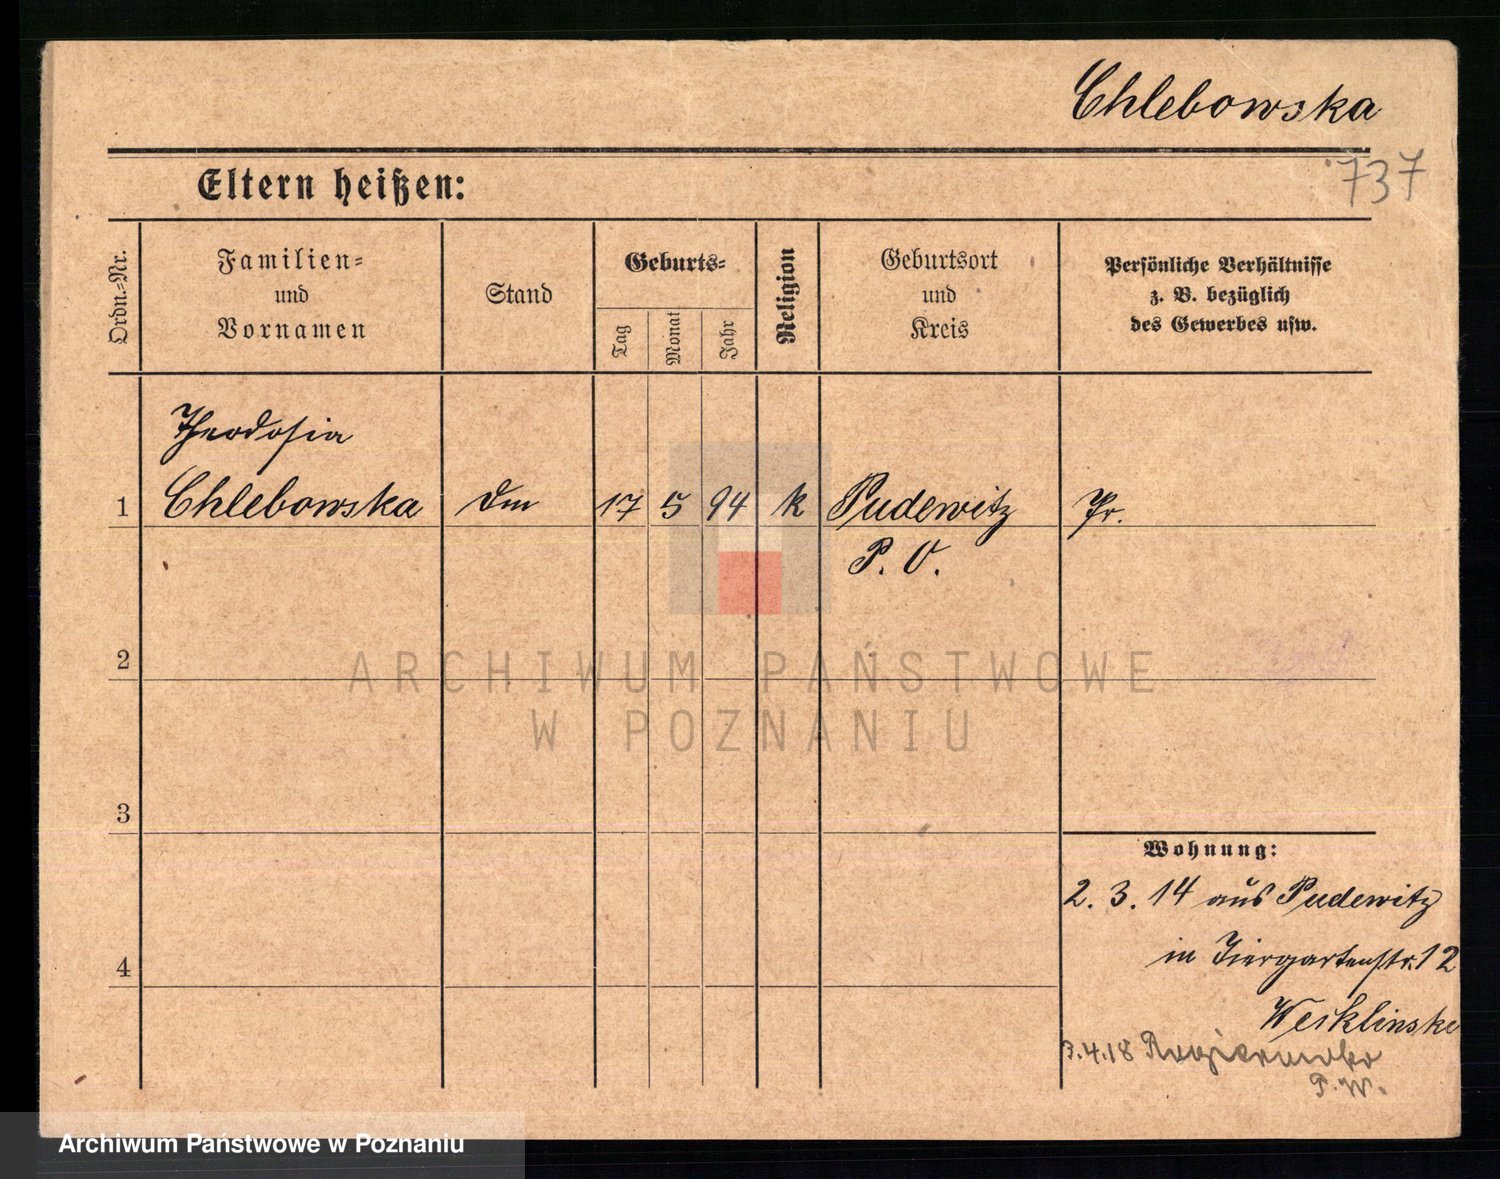 Chlebowska
737
Eltern heißen:
Ordn.-Nr.
Familien- und Vornamen
Stand
Geburts-
Tag
Monat
Jahr
Religion
Geburtsort und Kreis
Persönliche Verhältnisse z. B. bezüglich des Gewerbes usw.
Theodosia
1 Chlebowska 17 5 94 k Pudewitz Pr.
P. O.
2
ARCHIWUM PAŃSTWOWE
W POZNANIU
3
Wohnung:
2. 3. 14 aus Pudewitz
4
in Tiergartenstr. 12
3.4.18
P. W.
Archiwum Państwowe w Poznaniu